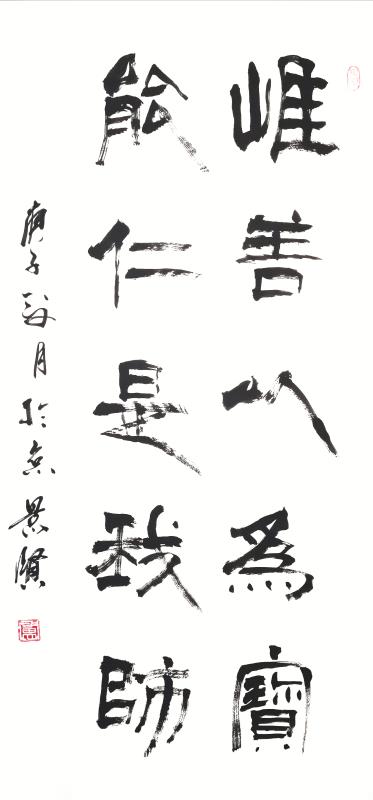 唯善以為寶
能仁是我師
庚子
月於京景賢